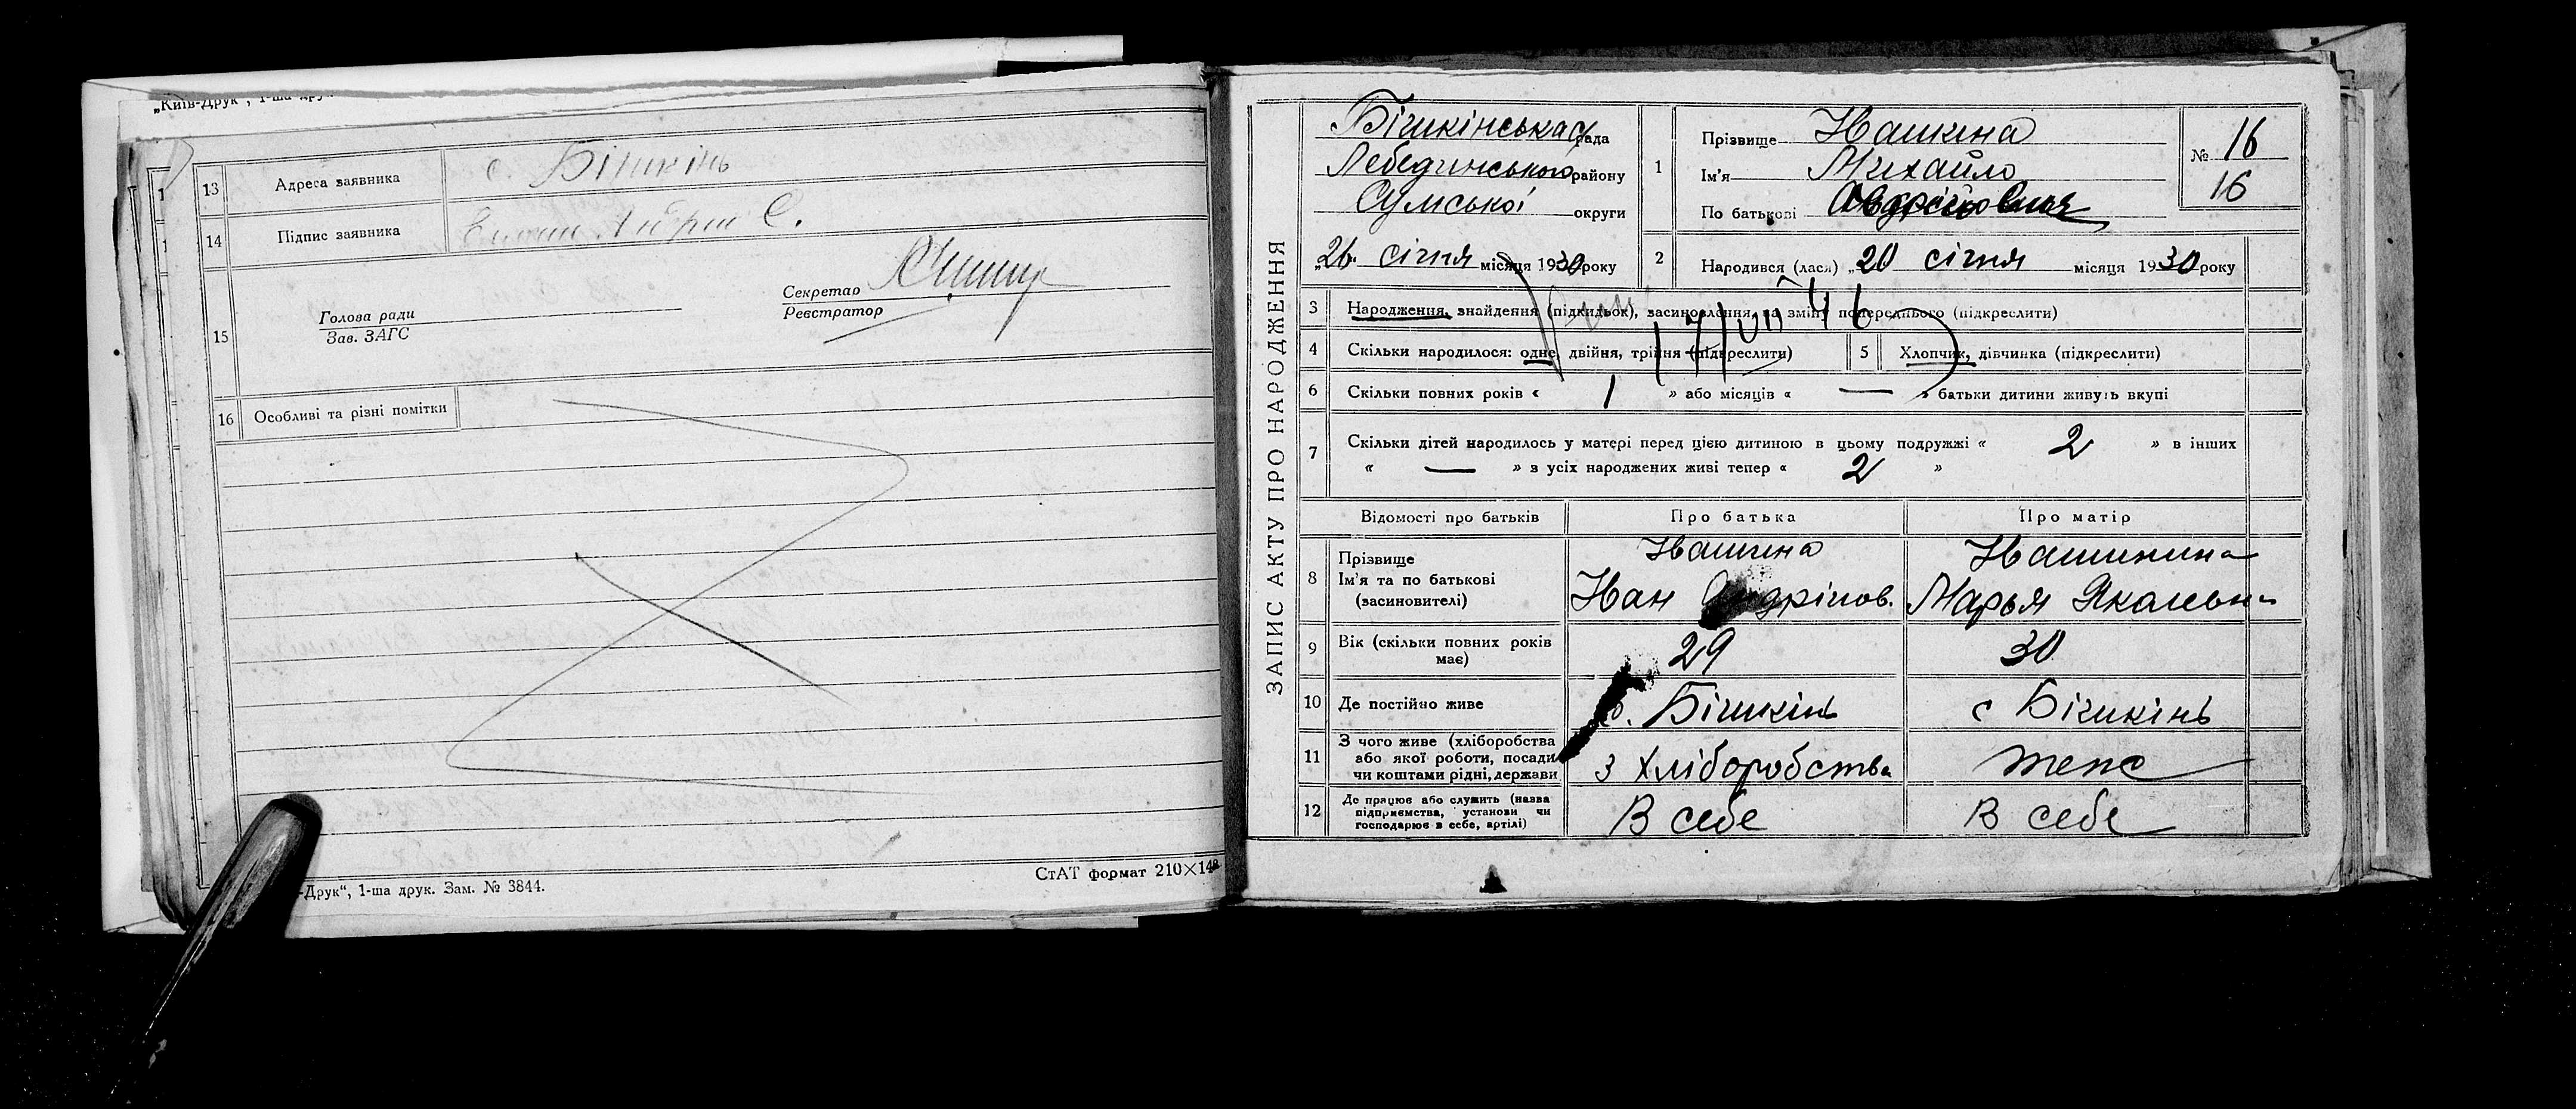 „Київ-Друк", 1-ша друк.
13 Адреса заявника с. Бішкінь
14 Підпис заявника
15 Голова ради
Зав. ЗАГС
Секретар
Реєстратор
16 Особливі та різні помітки
-Друк“, 1-ша друк. Зам. № 3844.
СтАТ формат 210×148
ЗАПИС АКТУ ПРО НАРОДЖЕННЯ
Бішкінська с/рада
Лебединського району
Сумської округи
„26„ січня місяця 1930 року
1 Прізвище Ивашина
Ім'я Михайло
По батькові
№ 16
16
2 Народився (лася) „20 січня місяця 1930 року
3 Народження, знайдення (підкидьок), засиновлення, на зміну попереднього (підкреслити)
17/VII 46
4 Скільки народилося: одне, двійня, трійня (підкреслити)
5 Хлопчик, дівчинка (підкреслити)
6 Скільки повних років « 1 » або місяців « — » батьки дитини живуть вкупі
7 Скільки дітей народилось у матері перед цією дитиною в цьому подружжі « 2 » в інших
« — » з усіх народжених живі тепер « 2 »
Відомості про батьків Про батька Про матір
8 Прізвище
Ім'я та по батькові
(засиновителі)
Ивашина
Иван Андріиов.
Ивашинина
Марья
9 Вік (скільки повних років має) 29 30
10 Де постійно живе с. Бішкінь с Бішкінь
11 З чого живе (хліборобства
або якої роботи, посади
чи коштами рідні, держави
з хліборобства
теже
12 Де працює або служить (назва
підприємства, установи чи
господарює в себе, артілі)
В себе
В себе